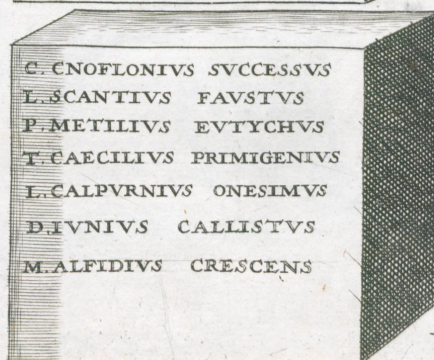 C. CNOFLONIVS SVCCESSVS
L. SCANTIVS FAVSTVS
P. METILIVS EVTYCHVS
T. CAECILIVS PRIMIGENIVS
L. CALPVRNIVS ONESIMVS
D. IVNIVS CALLISTVS
M. ALFIDIVS CRESCENS